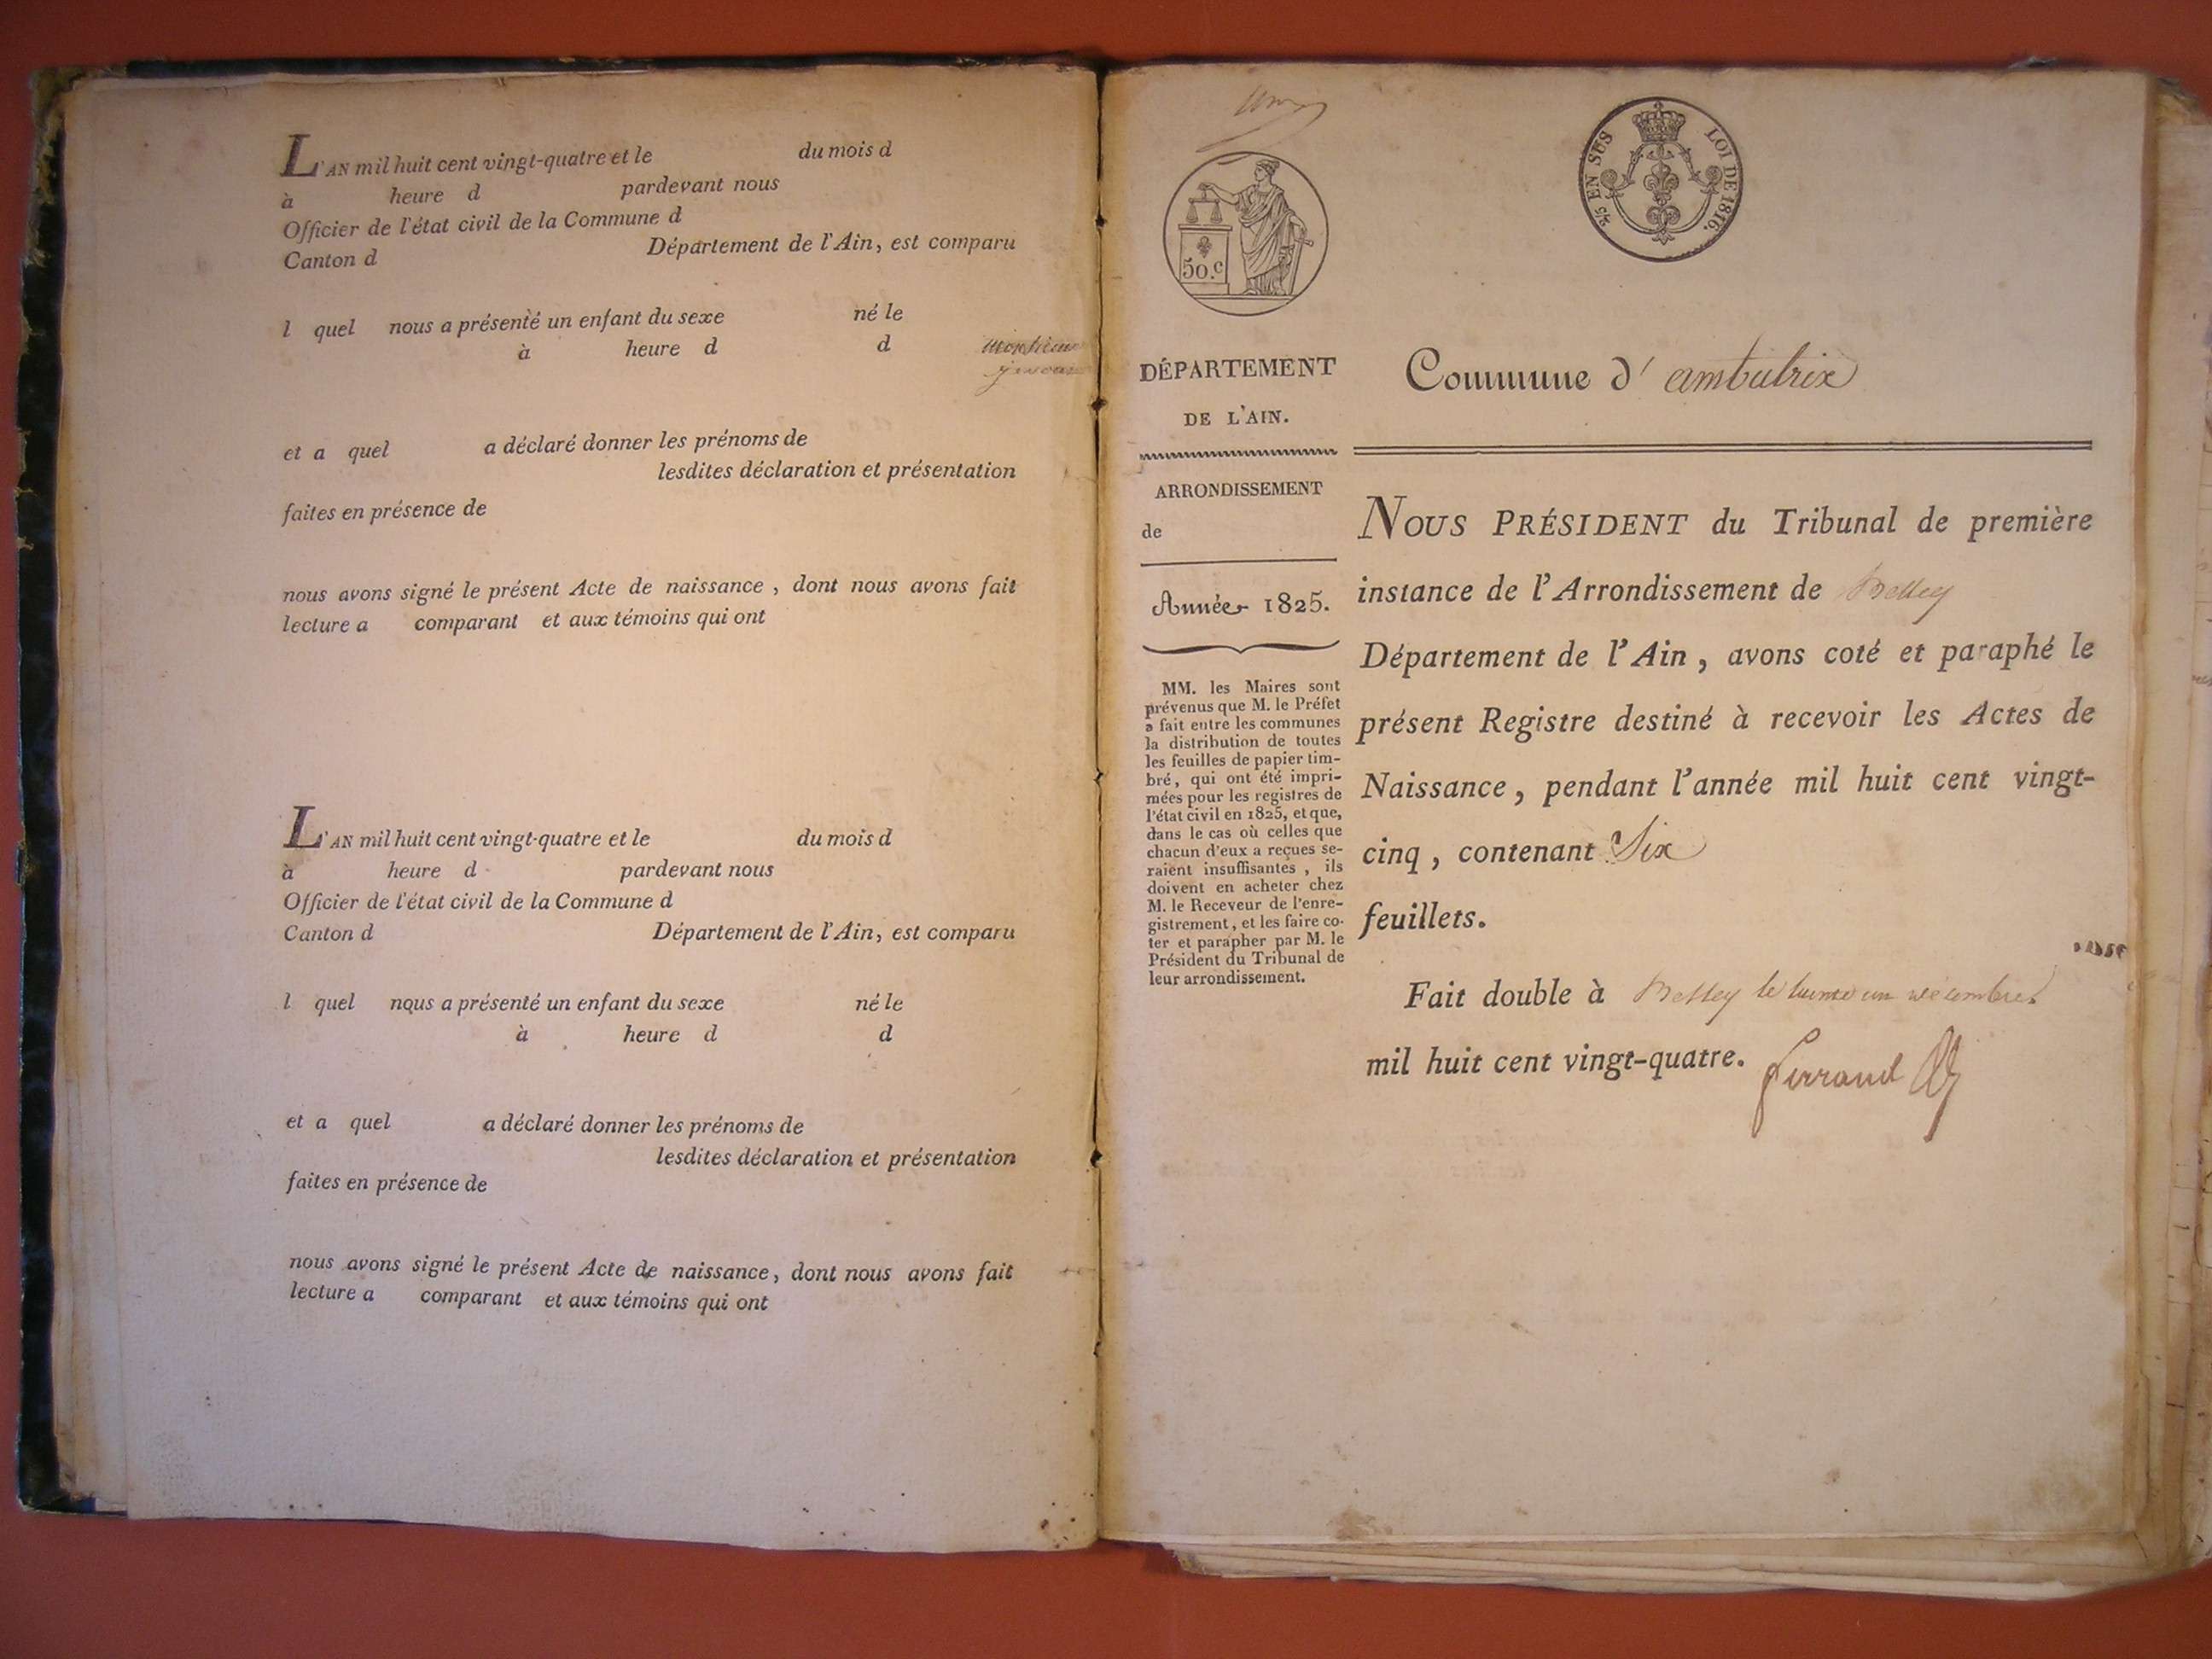 L'AN mil huit cent vingt-quatre et le du mois d
à heure d pardevant nous
Officier de l'état civil de la Commune d
Canton d Département de l'Ain, est comparu
l quel nous a présenté un enfant du sexe né le
à heure d d
et a quel a déclaré donner les prénoms de
lesdites déclaration et présentation
faites en présence de
nous avons signé le présent Acte de naissance, dont nous avons fait
lecture a comparant et aux témoins qui ont
L'AN mil huit cent vingt-quatre et le du mois d
à heure d pardevant nous
Officier de l'état civil de la Commune d
Canton d Département de l'Ain, est comparu
l quel nous a présenté un enfant du sexe né le
à heure d d
et a quel a déclaré donner les prénoms de
lesdites déclaration et présentation
faites en présence de
nous avons signé le présent Acte de naissance, dont nous avons fait
lecture a comparant et aux témoins qui ont
50.c
EN SUS LOI DE 1816.
DÉPARTEMENT
DE L'AIN.
ARRONDISSEMENT
de
Année 1825.
MM. les Maires sont
prévenus que M. le Préfet
a fait entre les communes
la distribution de toutes
les feuilles de papier tim-
bré, qui ont été impri-
mées pour les registres de
l'état civil en 1825, et que,
dans le cas où celles que
chacun d'eux a reçues se-
raient insuffisantes, ils
doivent en acheter chez
M. le Receveur de l'enre-
gistrement, et les faire co-
ter et parapher par M. le
Président du Tribunal de
leur arrondissement.
Commune d'ambutrix
NOUS PRÉSIDENT du Tribunal de première
instance de l'Arrondissement de Belley
Département de l'Ain, avons coté et paraphé le
présent Registre destiné à recevoir les Actes de
Naissance, pendant l'année mil huit cent vingt-
cinq, contenant Six
feuillets.
Fait double à Belley le trente un decembre
mil huit cent vingt-quatre. Ferrand